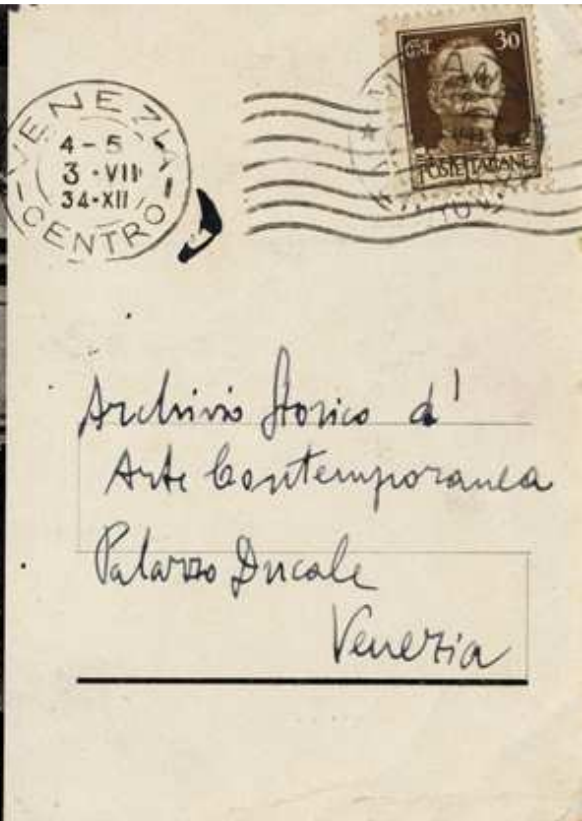 VENEZIA
4-5
3·VII
34-XII
CENTRO
CENT. 30
POSTE ITALIANE
Archivio Storico d'
Arte Contemporanea
Palazzo Ducale
Venezia